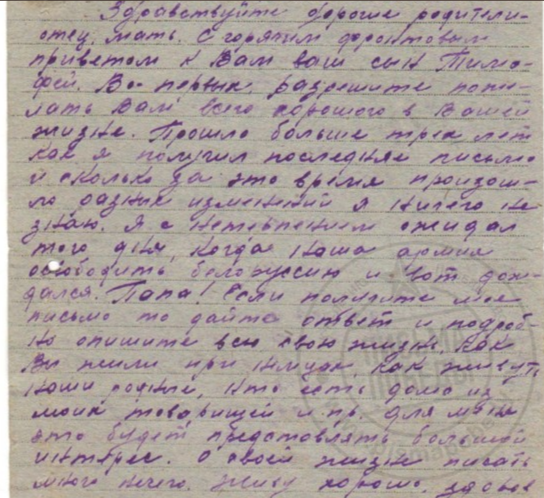 Здравствуйте дорогие родители-
отец, мать. С горячим фронтовым
приветом к Вам ваш сын Тимо-
фей. Во первых, разрешите поже-
лать Вам всего хорошого в Вашей
жизне. Прошло больше трех лет
как я получил последнее письмо
и сколько за это время произош-
ло разных изменений я ничего не
знаю. Я с нетерпением ожидал
того дня, когда наша армия
освободить белоруссию и вот дож-
дался. Папа! Если получите мое
письмо то дайте ответ и подроб-
но опишите всю свою жизнь, как
Вы жили при немцах, как живут
наши родные, кто есть дома из
моих товарищей и пр. для меня
это будет предстовлять большой
интерес. О своей жизне писать
много нечего. Живу хорошо,